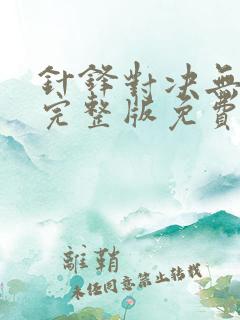 針鋒對决無
完整版免費
離鞘
未任同意禁止转载